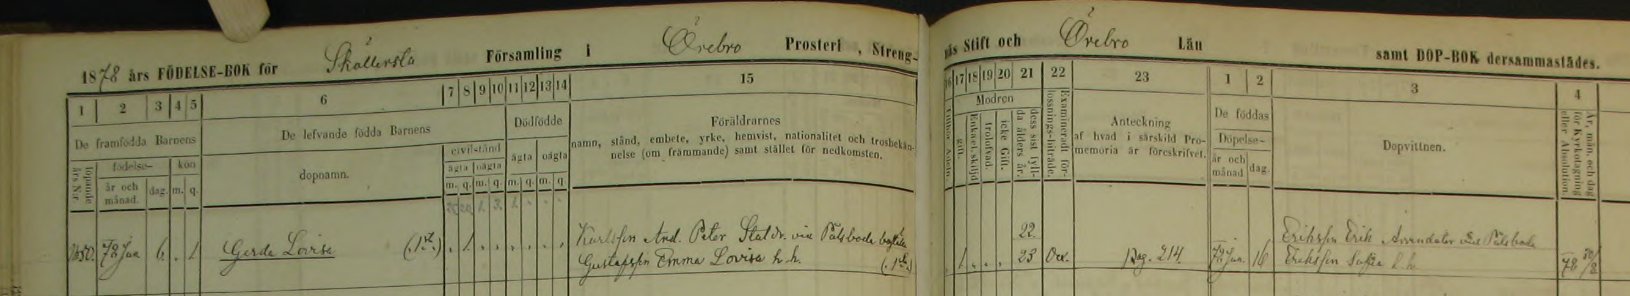 1878 års FÖDELSE-BOK för Skällersta Församling i Örebro Prosteri, Streng-
näs Stift och Örebro Län samt DOP-BOK dersammastädes.
1 2 3 4 5 6 7 8 9 10 11 12 13 14 15
17 18 19 20 21 22 23 1 2 3 4
De framfödda Barnens
De lefvande födda Barnens
Dödfödde
Föräldrarnes
namn, stånd, embete, yrke, hemvist, nationalitet och trosbekän-
nelse (om främmande) samt stället för nedkomsten.
Modren
Anteckning
af hvad i särskild Pro-
memoria är föreskrifvet.
De föddas
Döpelse-
Dopvittnen.
löpande
års N:r.
födelse-
kön
år och
månad.
dag.
m. q.
dopnamn.
civilstånd
ägta oägta
m. q. m. q.
ägta oägta
m. q. m. q.
gift.
Enka el. skiljd
trolofvad.
icke Gift.
dess sist fyll-
da ålders år.
Examineradt för-
lossnings-biträde.
år och
månad
dag.
År, mån. och dag
för Kyrkotagning
eller Absolution.
78 Jun 6. . 1 Gerda Lovisa . 1 . . . . . .
Karlsson And. Peter Statdr. via Pålsboda
Gustafsson Emma Lovisa h. h.
22
1 . . . 23 Ox. Pag. 214. 78 Jun. 16
Eriksson Erik Arrendator Pålsboda
Eriksson h. h.
78 30/8